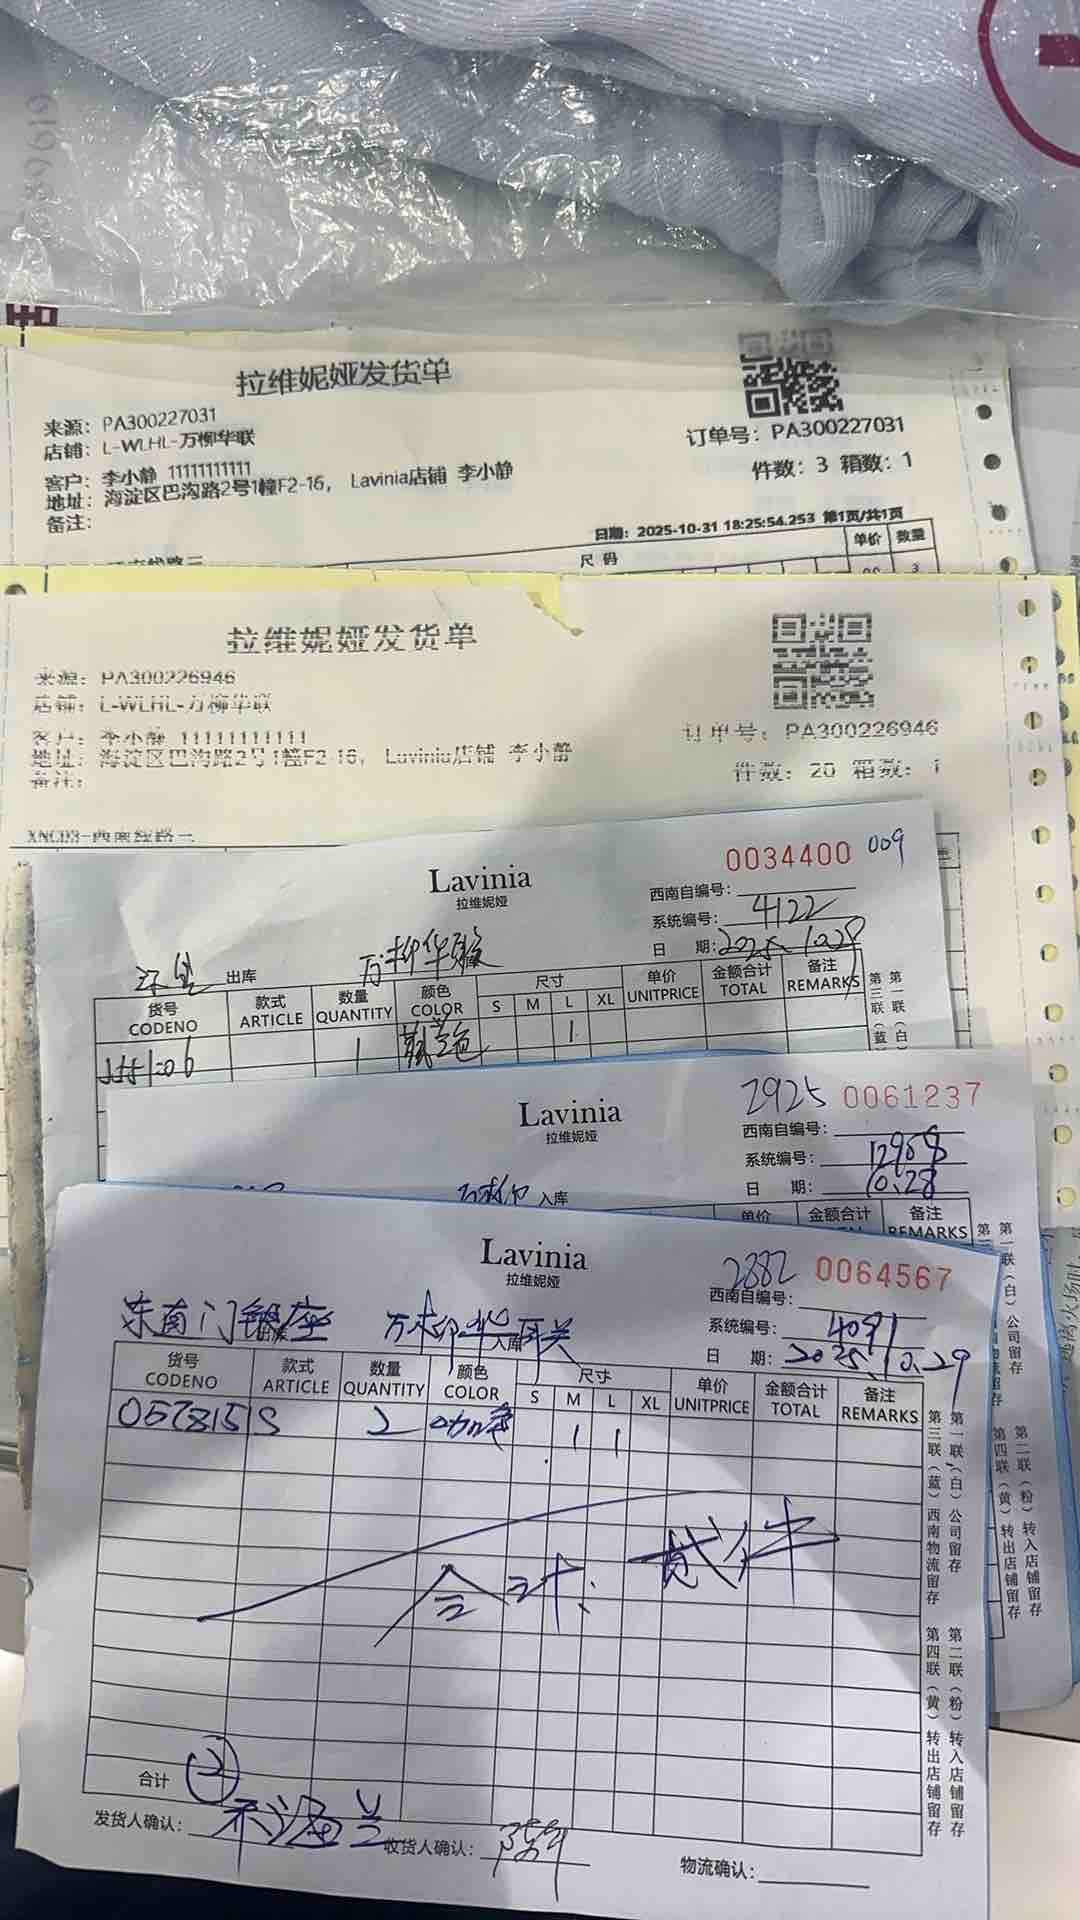 拉维妮娅发货单
来源：PA300227031
店铺：L-WLHL-万柳华联
订单号：PA300227031
客户：李小静 11111111111
件数：3 箱数：1
地址：海淀区巴沟路2号1幢F2-16， Lavinia店铺 李小静
备注：
日期：2025-10-31 18:25:54.253 第1页/共1页
尺码 单价 数量
3
拉维妮娅发货单
来源：PA300226946
店铺：L-WLHL-万柳华联
订单号：PA300226946
客户：李小静 11111111111
地址：海淀区巴沟路2号1幢F2-16， Lavinia店铺 李小静
件数：20 箱数：1
备注：
XNCD3-西南线路三
0034400 009
Lavinia
拉维妮娅
西南自编号：
系统编号：4122
日 期：2025.10.29
出库 万柳华联
货号 款式 数量 颜色 尺寸 单价 金额合计 备注
CODENO ARTICLE QUANTITY COLOR S M L XL UNITPRICE TOTAL REMARKS
1 1
2925 0061237
Lavinia
拉维妮娅
西南自编号：
系统编号：12968
日 期：10.28
万柳 入库
单价 金额合计 备注
REMARKS
2882 0064567
Lavinia
拉维妮娅
西南自编号：
系统编号：4091
日 期：2025.10.29
东直门银座 万柳华联 入库
货号 款式 数量 颜色 尺寸 单价 金额合计 备注
CODENO ARTICLE QUANTITY COLOR S M L XL UNITPRICE TOTAL REMARKS
057815 S 2 咖色 1 1
合计：贰件
合计 2
发货人确认：
收货人确认：
物流确认：
第一联（白）公司留存
第二联（粉）转入店铺留存
第三联（蓝）西南物流留存
第四联（黄）转出店铺留存